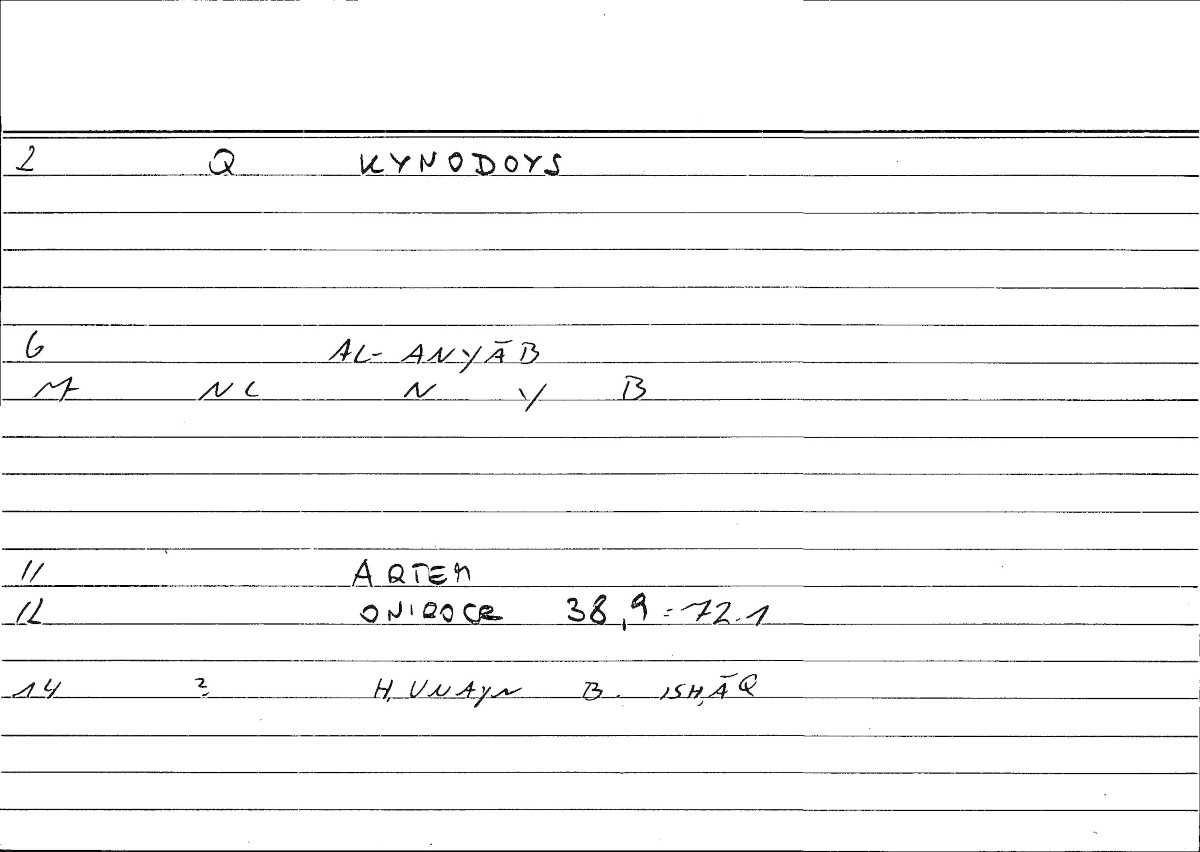 2 Q KYNODOYS
6 AL-ANYĀB
M NL N Y B
11 ARTEM
12 ONIROCR 38,9=72.1
14 ? Ḥ,UNAYN B. ISH,ĀQ